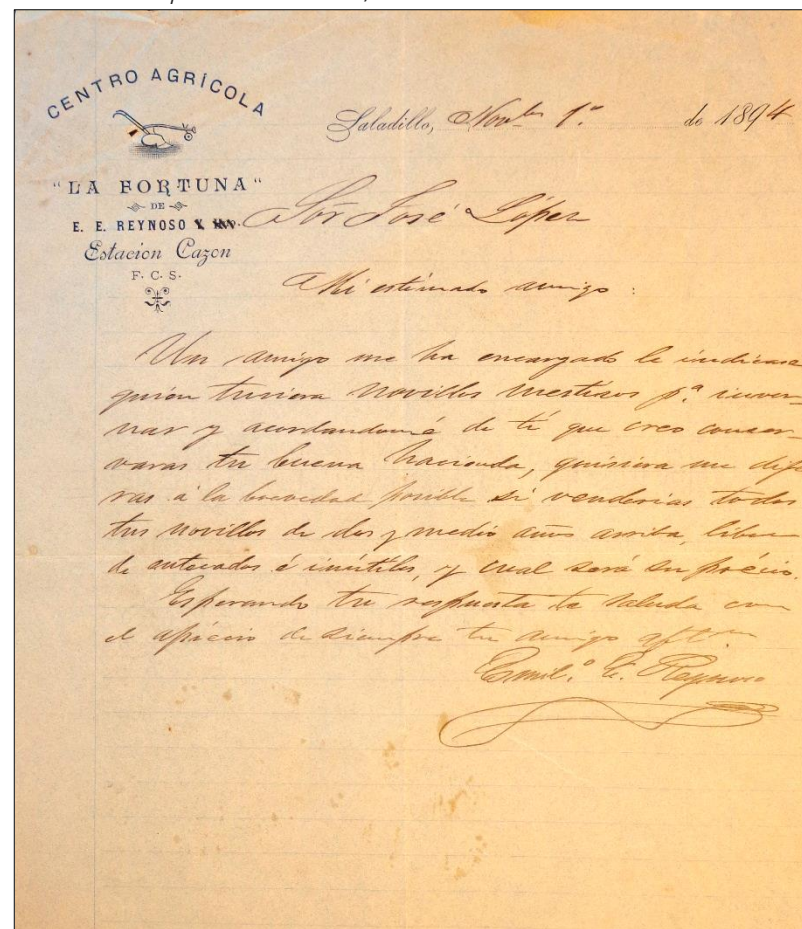 CENTRO AGRÍCOLA
"LA FORTUNA"
DE
E. E. REYNOSO
Estacion Cazon
F. C. S.
Saladillo, Novbre 1.º de 1894
Sōr José López
Mi estimado amigo:
Un amigo me ha encargado le indicase
quien tuviera novillos mestisos p.ª inver-
nar y acordandomé de tí que creo conser-
varas tu buena hacienda, quisiera me dije
ras á la brevedad posible si venderias todos
tus novillos de dos y medio años arriba, libre
de é inútiles, y cual será su précio.
Esperando tu respuesta te saluda con
el aprecio de siempre tu amigo affmo
Emil.º E. Reynoso